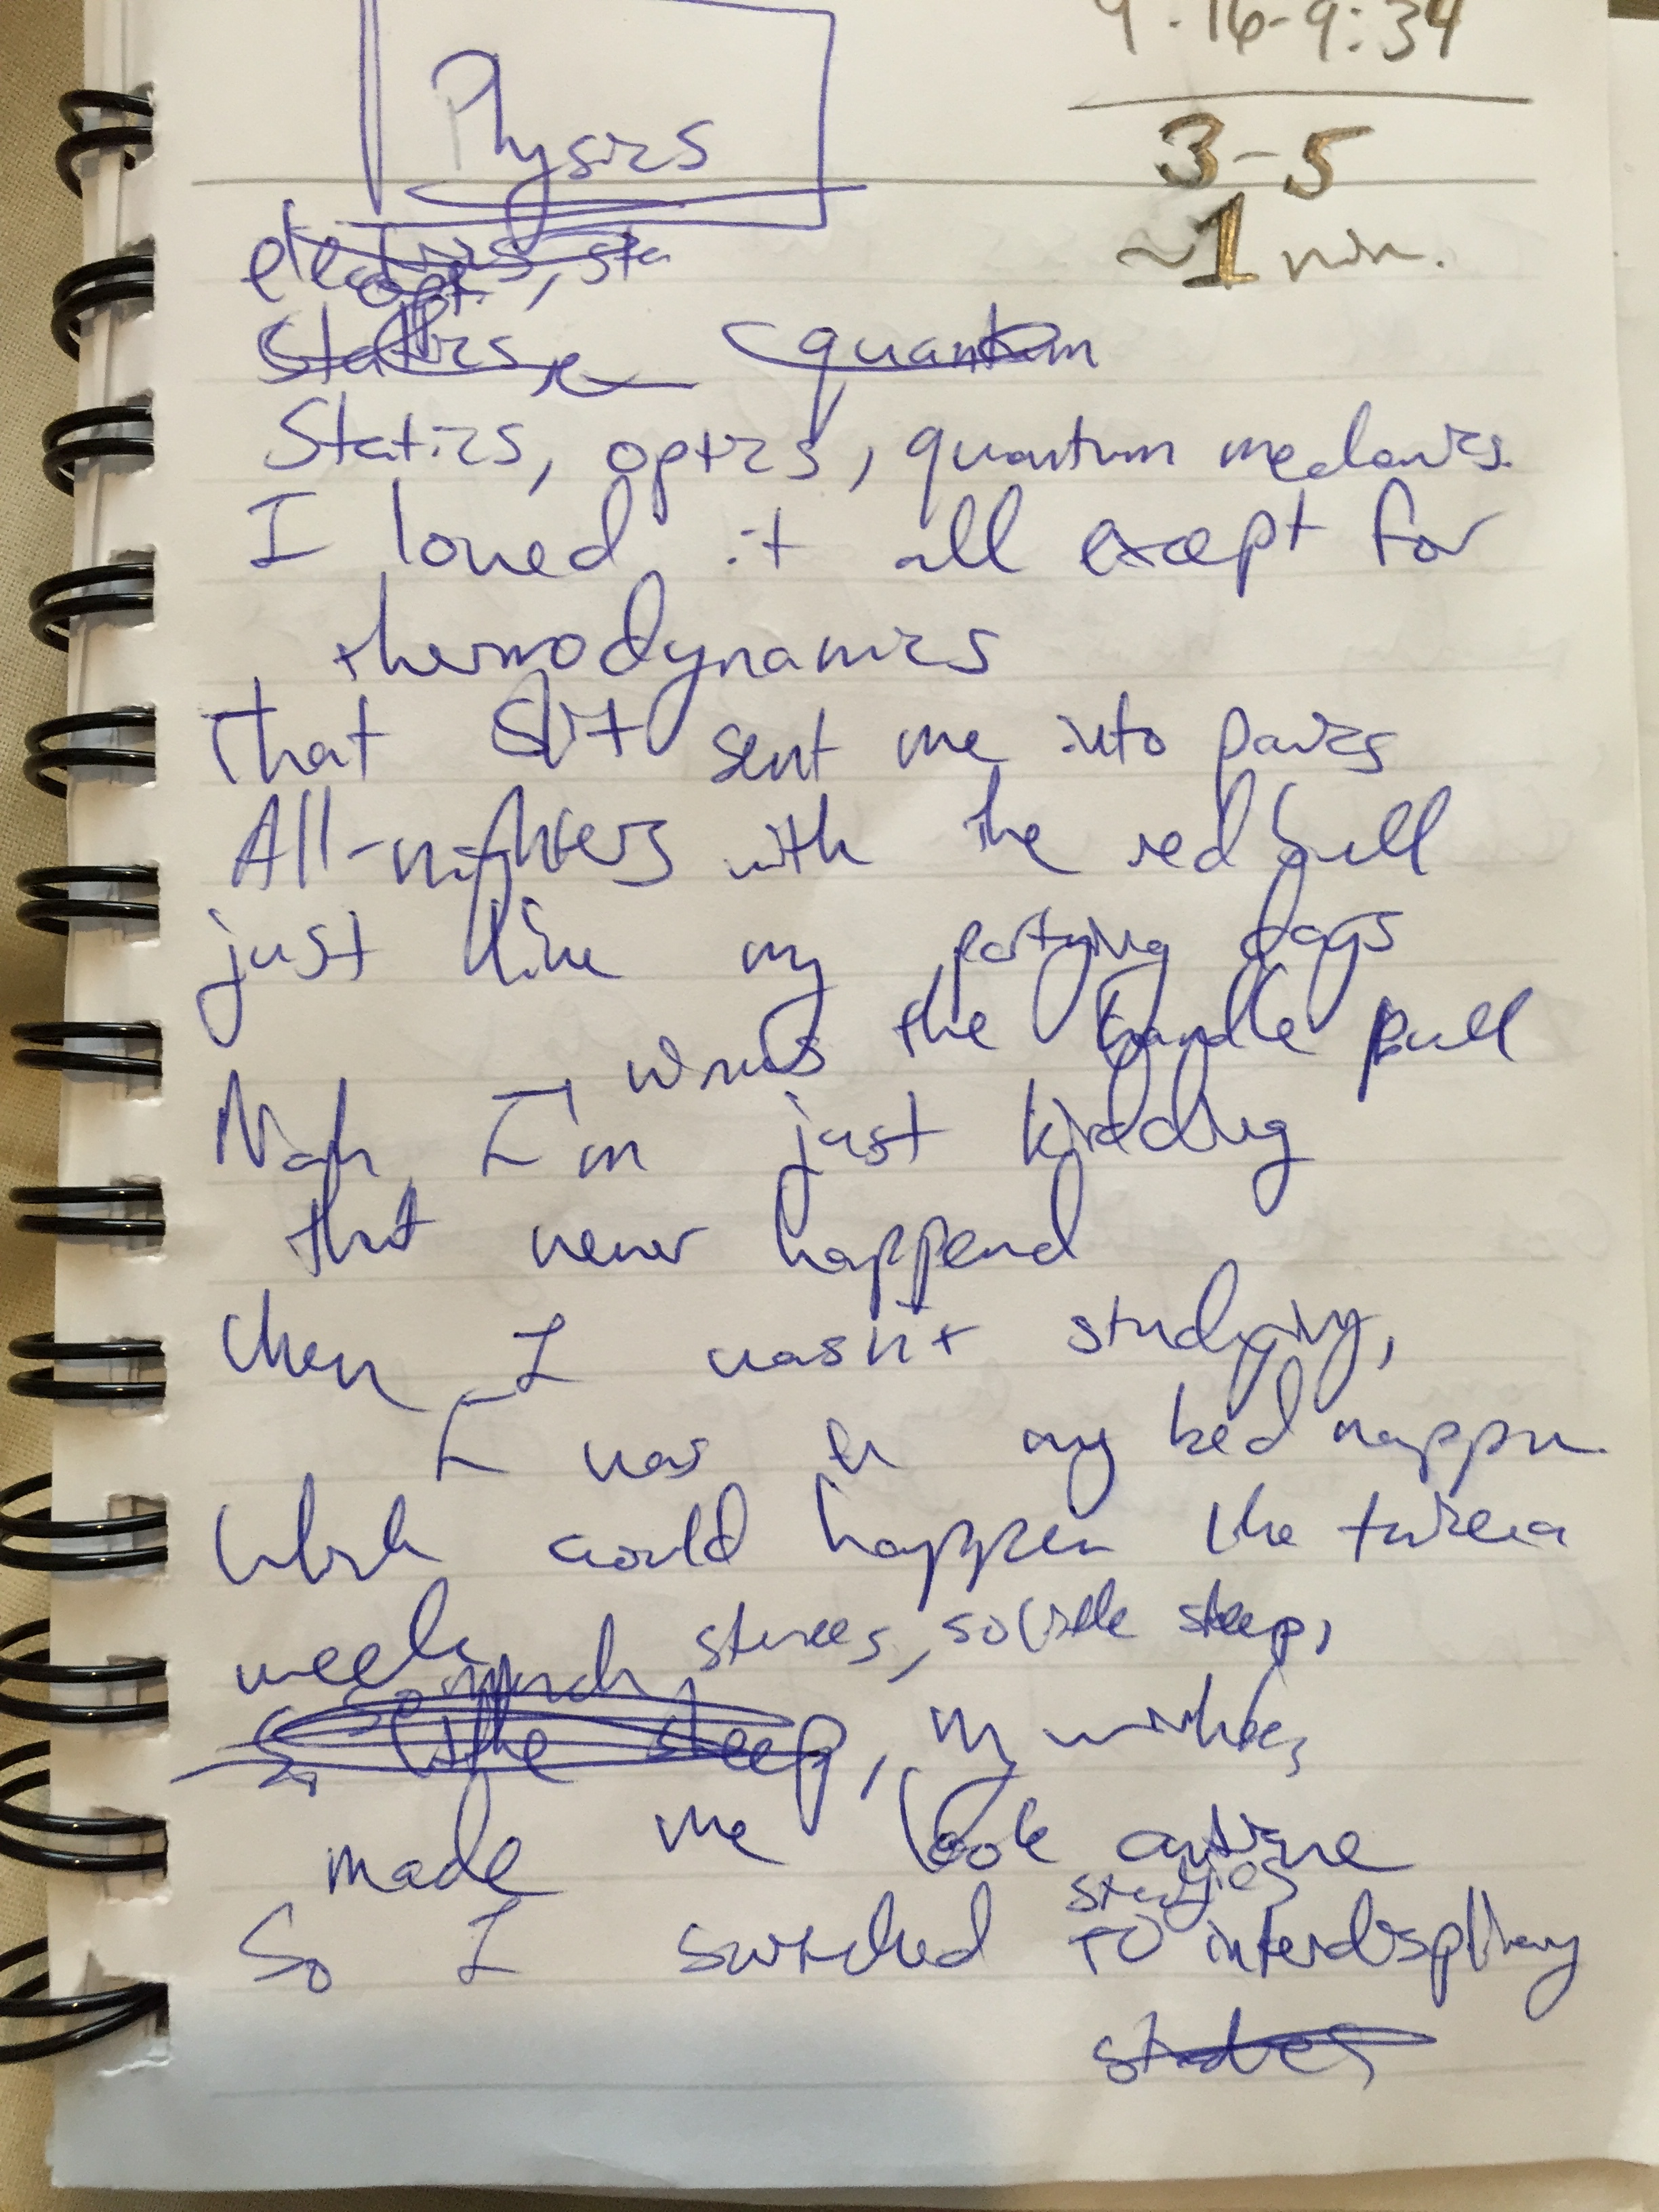 9:16-9:34
Physics
3-5
~1 min.
sta
opt.
Statics,
quantum
Statics, optics, quantum mechanics.
I loved it all except for
thermodynamics
That shit sent me into panics
All-nighters with the red bull
just like my partying days
minus the handle pull
Nah, I'm just kidding
that never happend
When I wasn't studying,
I was in my bed nappin
Which could happen like twice a
week
So much stress, so little sleep,
So little sleep, my wrinkles
made me look
So I switched to interdisplinary
studies
studies